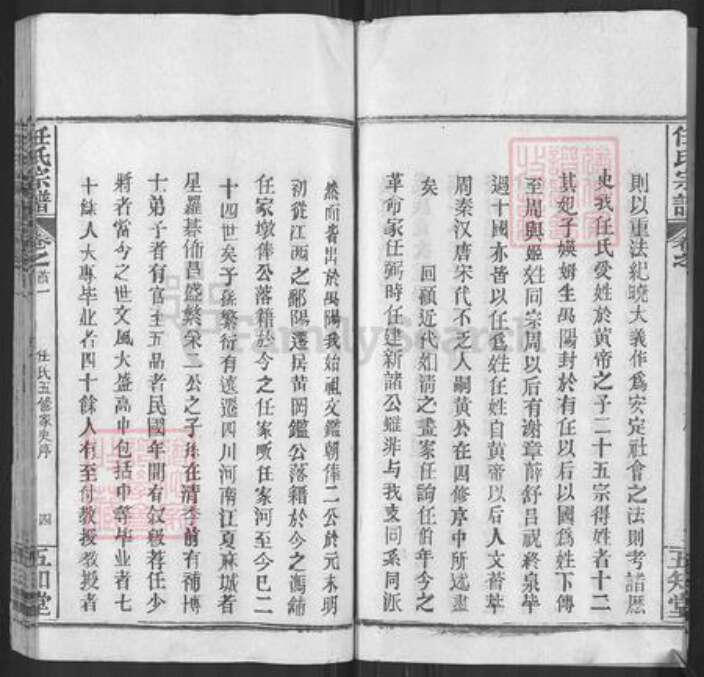 任氏宗譜
五知堂
則以重法纪晓大義作為安定社會之法則考諸歷
史我任氏受姓於黄帝之子二十五宗得姓者十二
其妃子嫫姆生禺陽封於有任以后以國為姓下傳
至周與姬姓同宗周以后有謝章薛舒吕祝終泉毕
過十國亦皆以任為姓任姓自黄帝以后人文薈萃
周秦汉唐宋代不乏人嗣黄公在四修序中所述尽
矣 回顧近代如清之畫家任詢任伯年今之
革命家任弼時任建新諸公雖非与我支同系同派
然而皆出於禺陽我始祖文鑑朝俸二公於元末明
初從江西之鄱陽遷居黄冈鑑公落籍於今之馮鋪
任家墩俸公落籍於今之任家畈任家河至今已二
十四世矣子孫繁衍有遠遷四川河南江夏麻城者
星羅棊佈昌盛繁荣二公之子孫在清季前有補博
士弟子者有官至五品者民國年間有叙級荐任少
將者當今之世文風大盛高中包括中等毕业者七
十餘人大專毕业者四十餘人有至付教授教授者
任氏宗譜
卷之首一
任氏五修家史序
四
五知堂
FamilySearch